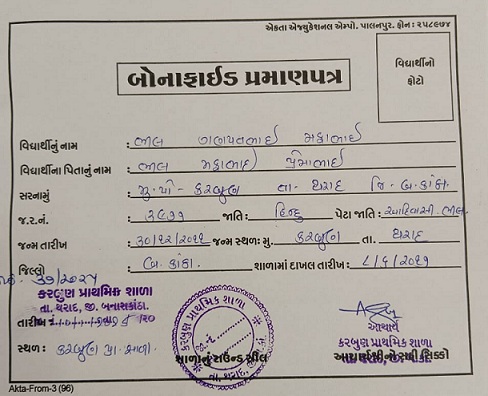 એકતા એજ્યુકેશનલ એમ્પો. પાલનપુર. ફોન : ૨૫૮૯૭૪
વિદ્યાર્થીનો
ફોટો
બોનાફાઈડ પ્રમાણપત્ર
વિદ્યાર્થીનું નામ : ભીલ ગણપતભાઈ મફાભાઈ
વિદ્યાર્થીના પિતાનું નામ : ભીલ મફાભાઈ પ્રેમાભાઈ
સરનામું : મુ.પો- કરબુણ તા- થરાદ જિ- બ.કાંઠા
જ.ર.નં. : ૩૯૭૭ જાતિ : હિન્દુ પેટા જાતિ : આદિવાસી ભીલ
જન્મ તારીખ : ૩૦/૧૨/૨૦૧૧ જન્મ સ્થળ: મુ. કરબુણ તા. થરાદ
જિલ્લો : બ.કાંઠા. શાળામાં દાખલ તારીખ : ૮/૬/૨૦૧૭
કરબુણ પ્રાથમિક શાળા
તા. થરાદ, જી. બનાસકાંઠા.
તારીખ :
સ્થળ : કરબુણ પ્રા. શાળા
કરબુણ પ્રાથમિક શાળા
તા. થરાદ, જી.
શાળાનું રાઉન્ડ સીલ
આચાર્ય
કરબુણ પ્રાથમિક શાળા
આચાર્યશ્રીનો સહી સિક્કો
Akta-From-3 (96)